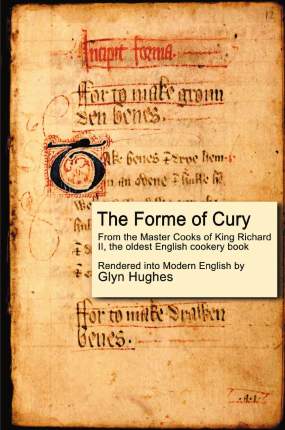 12
Incipit forma
ffor to make gronn
den benes.
Take benes & drye hem
in an ovene & hulle he
The Forme of Cury
From the Master Cooks of King Richard
II, the oldest English cookery book
Rendered into Modern English by
Glyn Hughes
ffor to make drawen
benes.